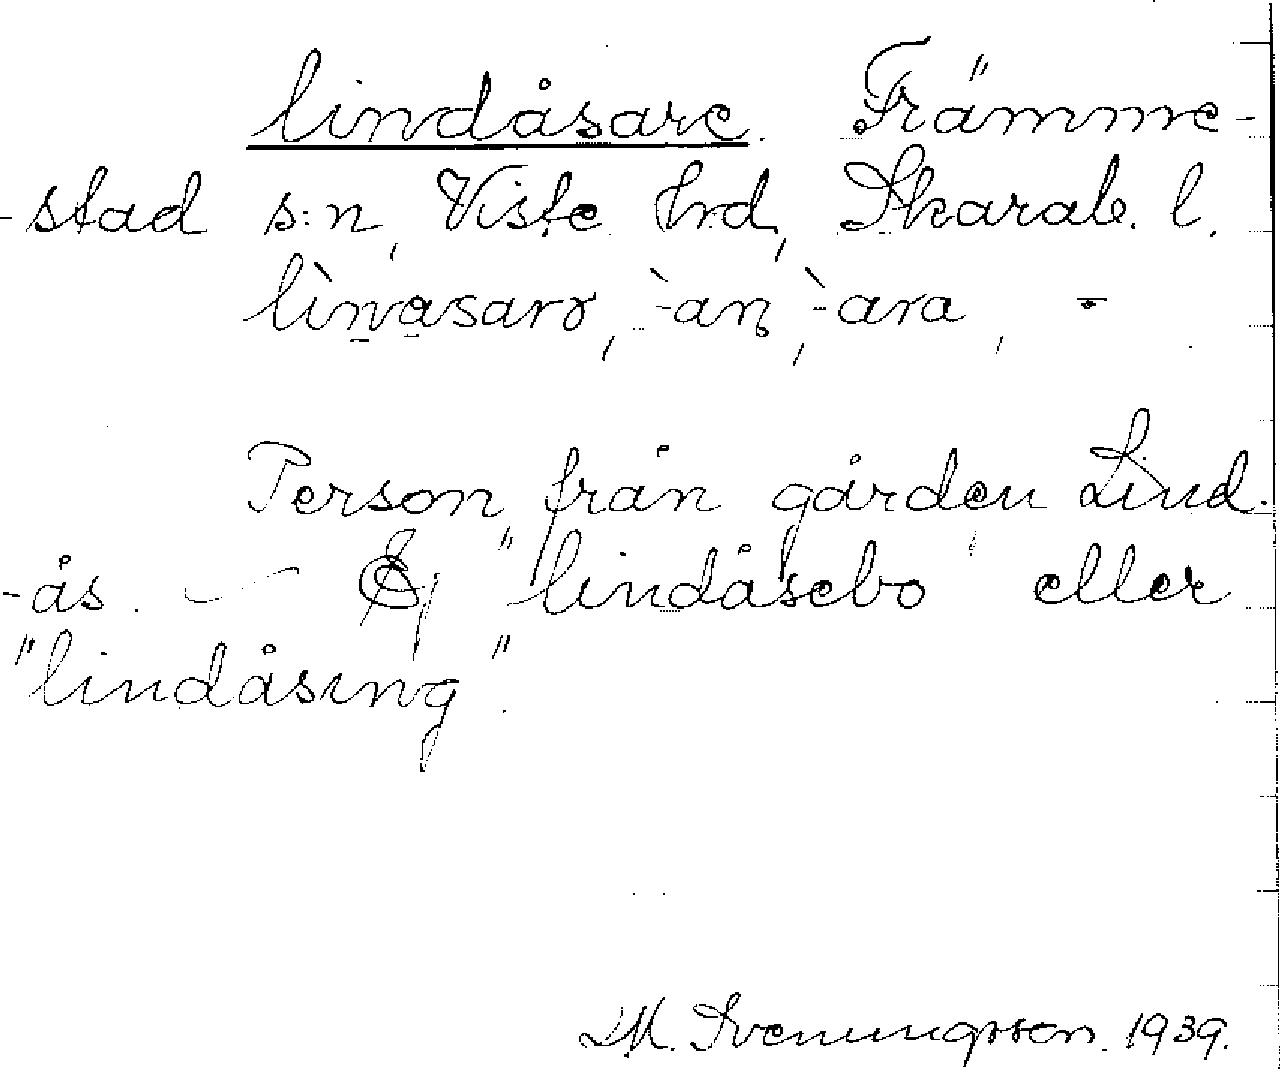 lindåsare. Främme-
-stad s:n, Viste hrd, Skarab. l.
lìnasarə, -̀an, -̀ara, -
Person från gården Lind-
-ås. — Ej "lindåsebo" eller
"lindåsing".
M. Svenungsson. 1939.